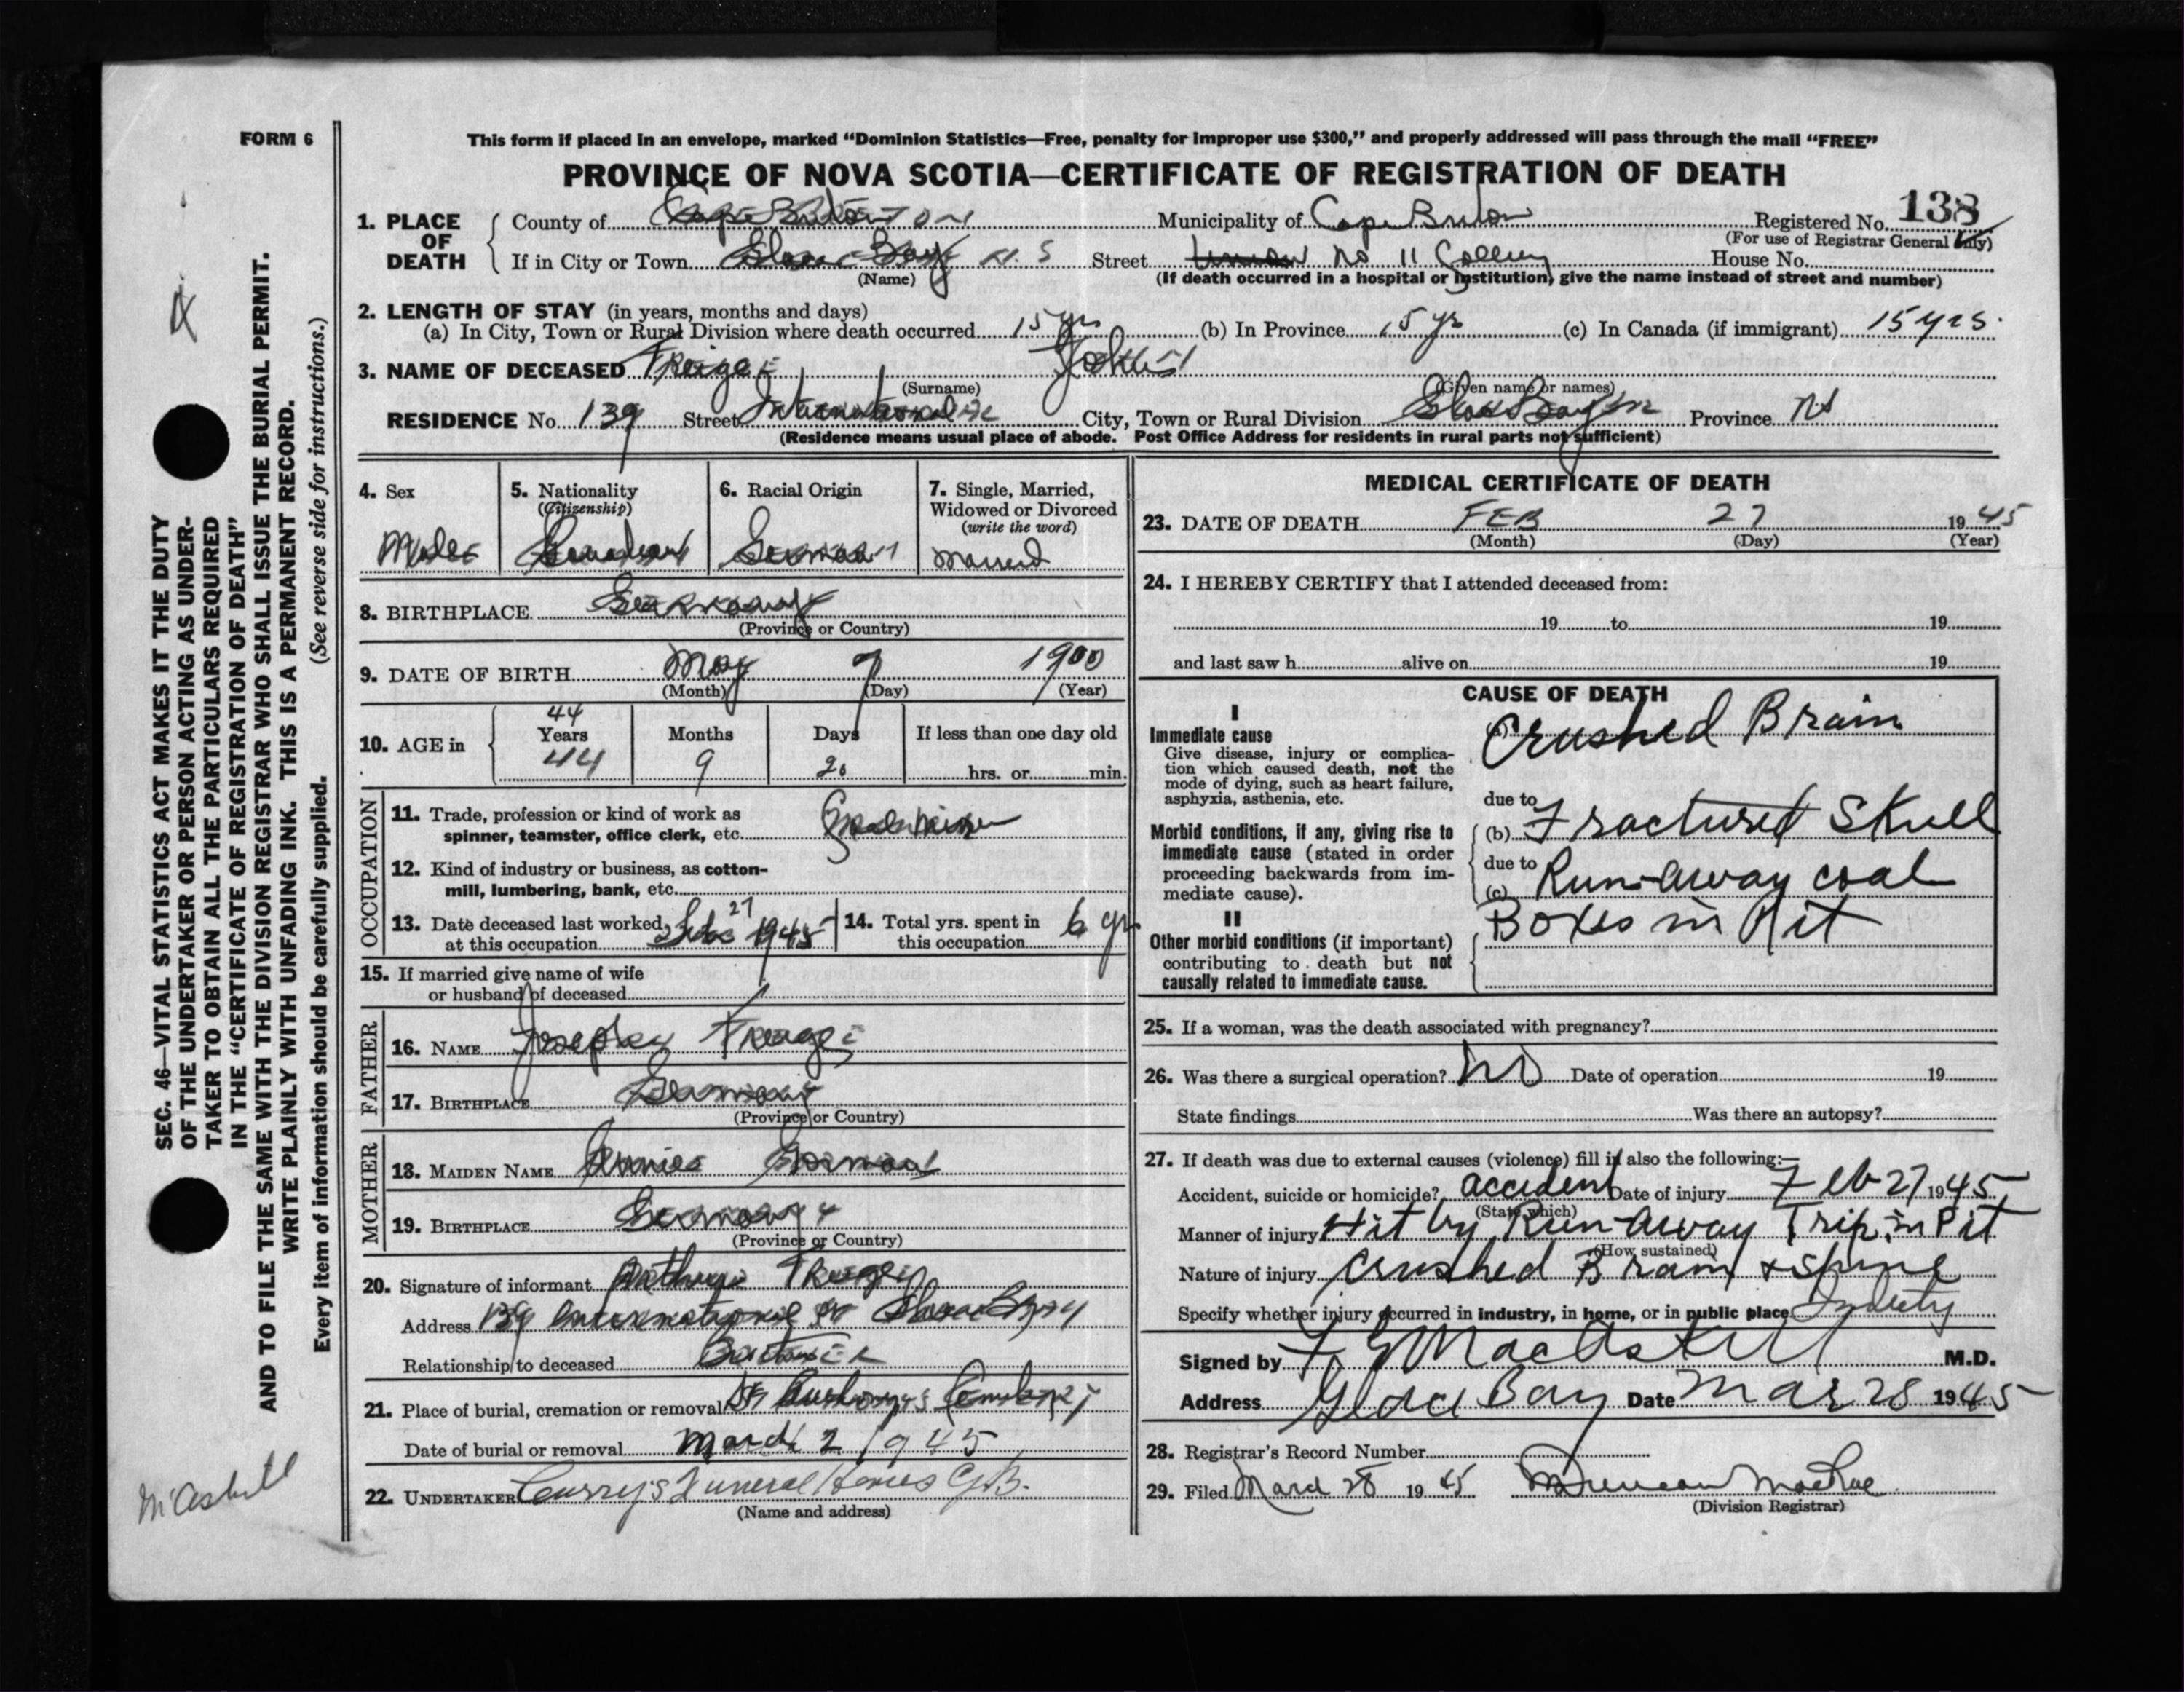 FORM 6
This form if placed in an envelope, marked “Dominion Statistics—Free, penalty for improper use $300,” and properly addressed will pass through the mail “FREE”
PROVINCE OF NOVA SCOTIA—CERTIFICATE OF REGISTRATION OF DEATH
1. PLACE OF DEATH County of Cape Breton Municipality of Cape Breton Registered No. 138
(For use of Registrar General only)
If in City or Town Glace Bay N.S Street No 11 Colliery House No.
(Name) (If death occurred in a hospital or institution, give the name instead of street and number)
2. LENGTH OF STAY (in years, months and days)
(a) In City, Town or Rural Division where death occurred 15 yrs (b) In Province 15 yrs (c) In Canada (if immigrant) 15 yrs.
3. NAME OF DECEASED John
(Surname) (Given name or names)
RESIDENCE No. 139 Street International St City, Town or Rural Division Glace Bay Province NS
(Residence means usual place of abode. Post Office Address for residents in rural parts not sufficient)
4. Sex Male
5. Nationality (Citizenship) Canadian
6. Racial Origin German
7. Single, Married, Widowed or Divorced (write the word) Married
8. BIRTHPLACE Germany
(Province or Country)
9. DATE OF BIRTH May 7 1900
(Month) (Day) (Year)
10. AGE in 44 Years 44 Months 9 Days 20 If less than one day old hrs. or min.
OCCUPATION
11. Trade, profession or kind of work as
spinner, teamster, office clerk, etc. Coal Miner
12. Kind of industry or business, as cotton-
mill, lumbering, bank, etc.
13. Date deceased last worked
at this occupation Feb 27 1945
14. Total yrs. spent in
this occupation 6 yrs
15. If married give name of wife
or husband of deceased
FATHER
16. NAME Joseph
17. BIRTHPLACE Germany
(Province or Country)
MOTHER
18. MAIDEN NAME Annie
19. BIRTHPLACE Germany
(Province or Country)
20. Signature of informant Arthur
Address 139 International St Glace Bay
Relationship to deceased Brother
21. Place of burial, cremation or removal St Anthonys Cemetery
Date of burial or removal March 2 1945
22. UNDERTAKER Curry's Funeral Homes G.B.
(Name and address)
MEDICAL CERTIFICATE OF DEATH
23. DATE OF DEATH FEB 27 1945
(Month) (Day) (Year)
24. I HEREBY CERTIFY that I attended deceased from:
19 to 19
and last saw h alive on 19
CAUSE OF DEATH
I
Immediate cause
Give disease, injury or complica-
tion which caused death, not the
mode of dying, such as heart failure,
asphyxia, asthenia, etc.
(a) Crushed Brain
due to
Morbid conditions, if any, giving rise to
immediate cause (stated in order
proceeding backwards from im-
mediate cause).
(b) Fractured Skull
due to
(c) Run-away coal
Boxes in Pit
II
Other morbid conditions (if important)
contributing to death but not
causally related to immediate cause.
25. If a woman, was the death associated with pregnancy?
26. Was there a surgical operation? No Date of operation 19
State findings Was there an autopsy?
27. If death was due to external causes (violence) fill in also the following:—
Accident, suicide or homicide? accident Date of injury Feb 27 1945
(State which)
Manner of injury Hit by Run-away Trip in Pit
(How sustained)
Nature of injury Crushed Brain & Spine
Specify whether injury occurred in industry, in home, or in public place Industry
Signed by F G MacAskill M.D.
Address Glace Bay Date Mar 28 1945
28. Registrar's Record Number
29. Filed March 28 1945 Duncan MacRae
(Division Registrar)
SEC. 46—VITAL STATISTICS ACT MAKES IT THE DUTY
OF THE UNDERTAKER OR PERSON ACTING AS UNDER-
TAKER TO OBTAIN ALL THE PARTICULARS REQUIRED
IN THE “CERTIFICATE OF REGISTRATION OF DEATH”
AND TO FILE THE SAME WITH THE DIVISION REGISTRAR WHO SHALL ISSUE THE BURIAL PERMIT.
WRITE PLAINLY WITH UNFADING INK. THIS IS A PERMANENT RECORD.
Every item of information should be carefully supplied. (See reverse side for instructions.)
McAskill